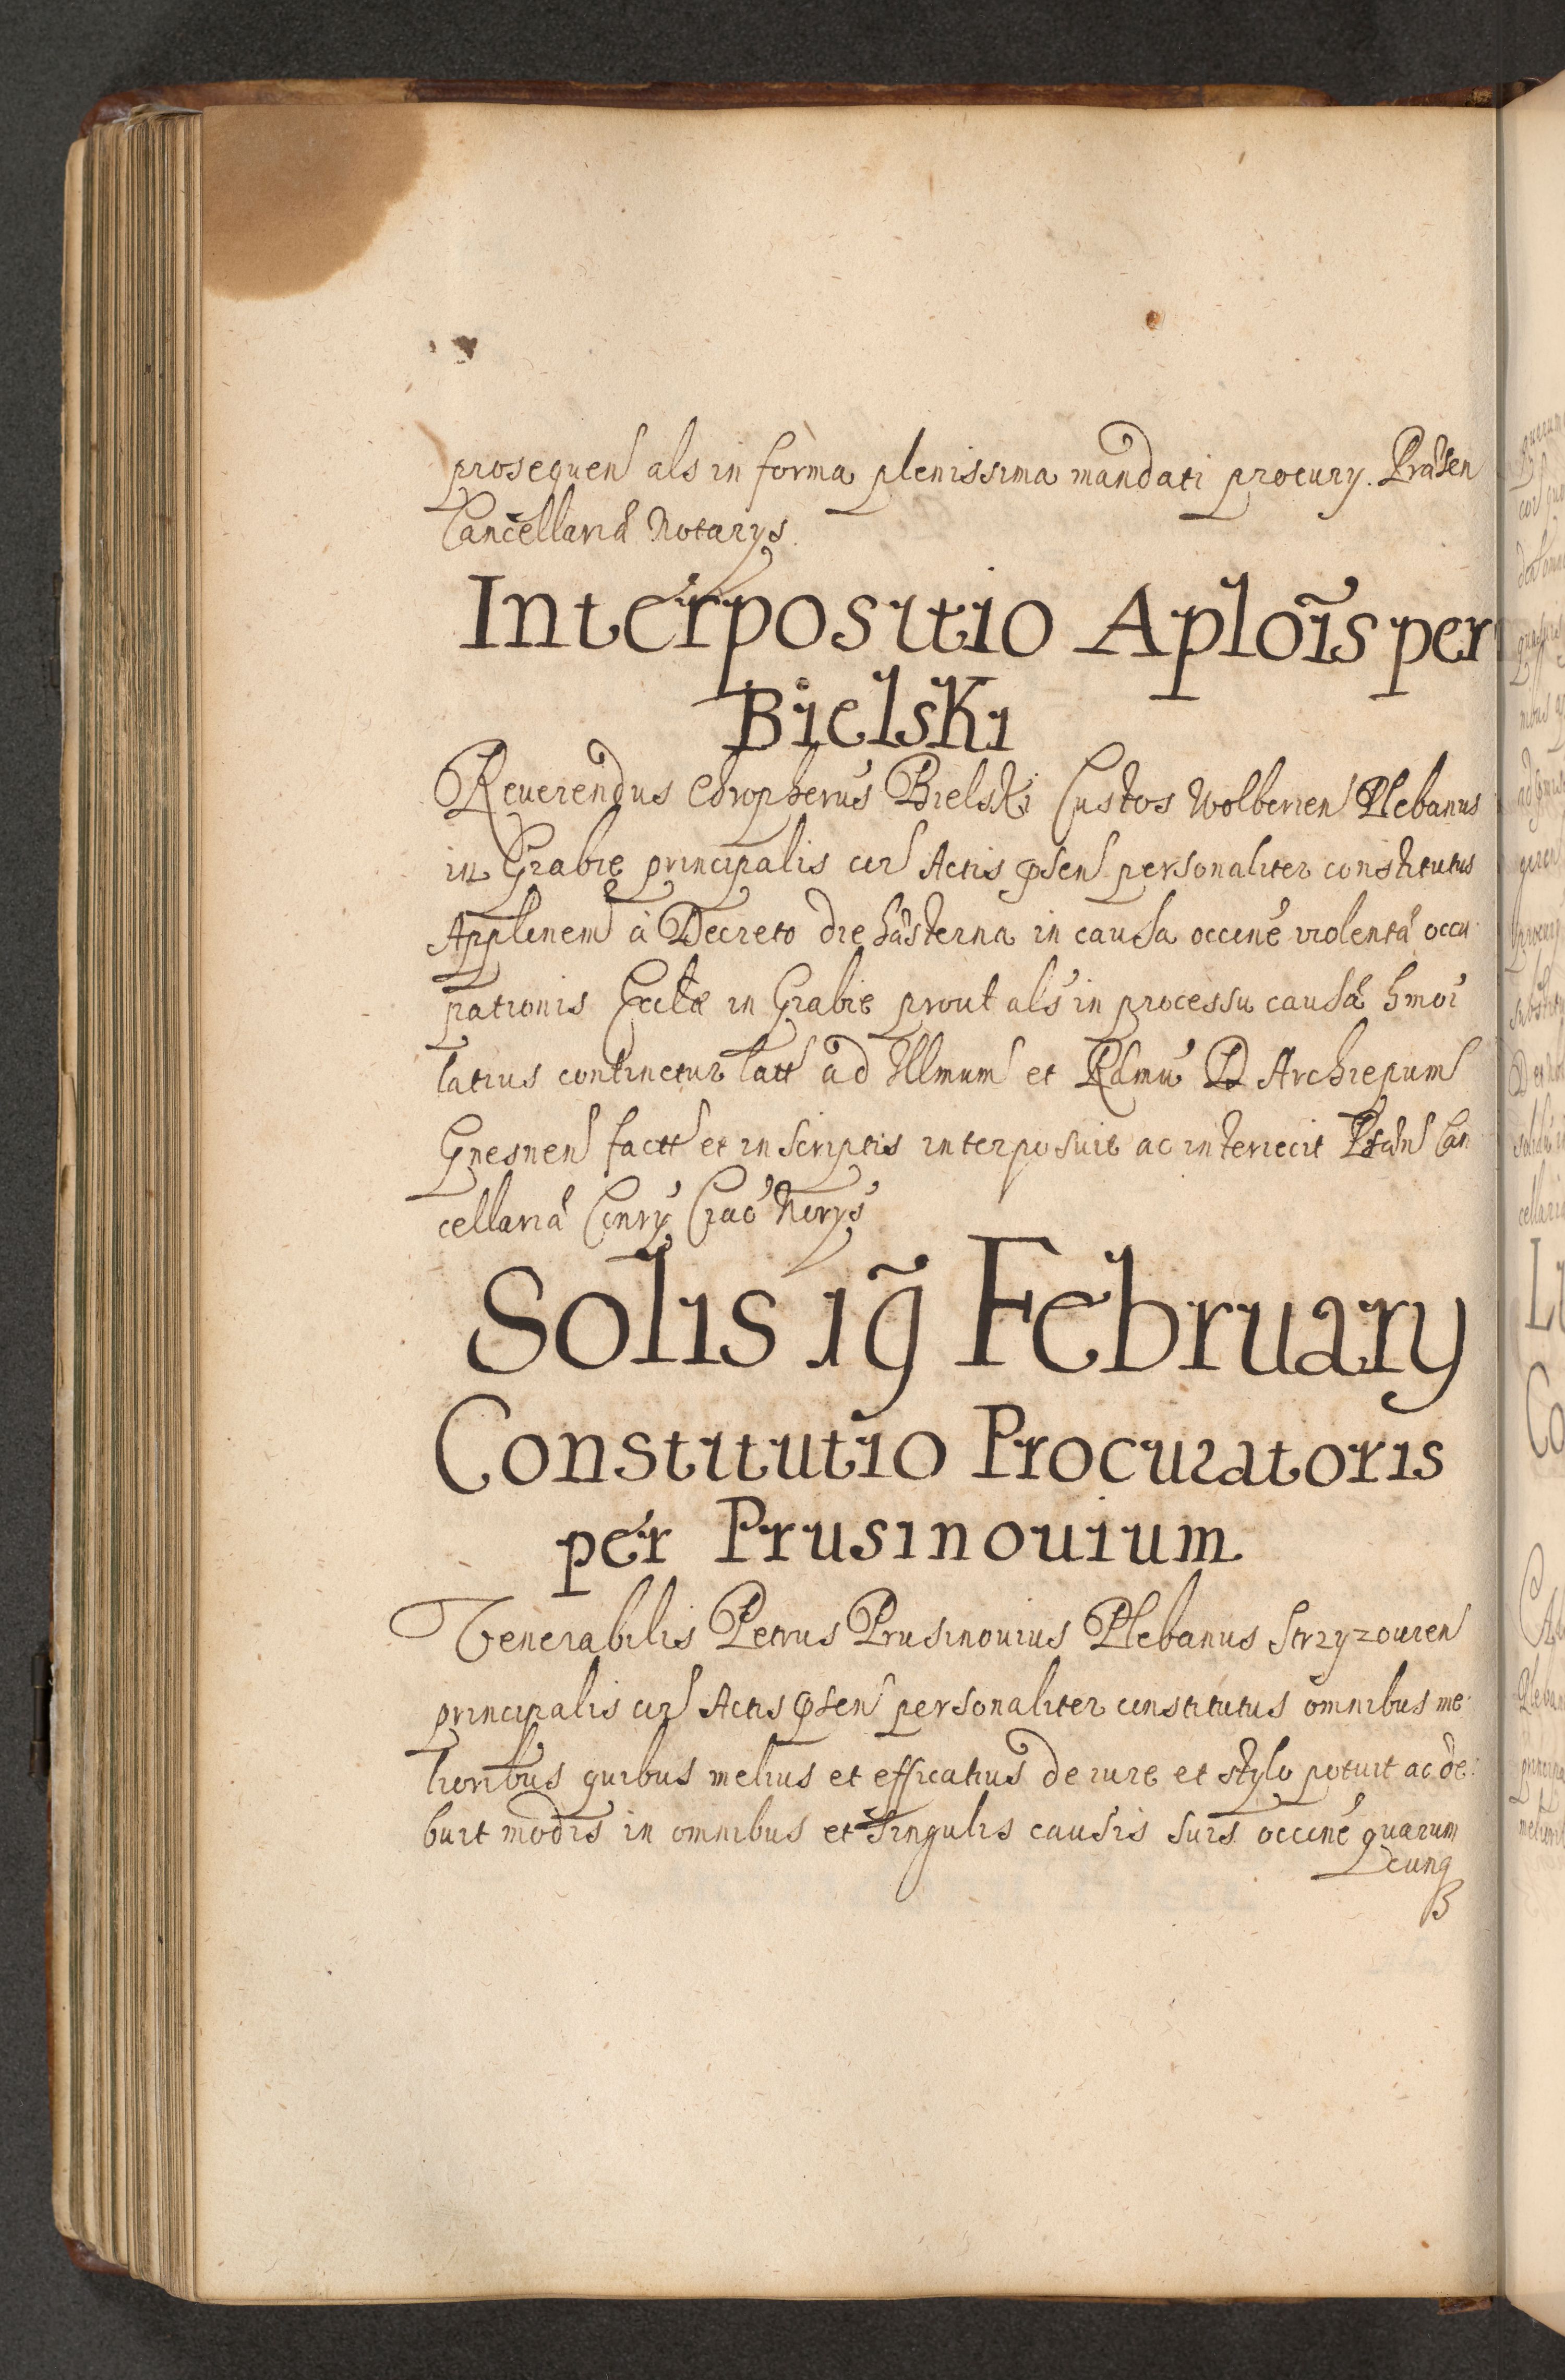 prosequen als in forma plenissima mandati procury. Præsen
Cancellariæ Notarys.
Interpositio Aploīs per
Bielski
Reuerendus Chropherus Bielski Custos Wolberien Plebanus
in Grabie principalis cor Actis psen personaliter constitutus
Applnem à Decreto die hæsterna in causa occne violentæ occu
pationis Eccliæ in Grabie prout als in processu causæ hmoi
latius continetur latt ad Illmum et Rdmu D Archiepum
Gnesnen factt et in scriptis interposuit ac interiecit Psen Can
cellariæ Conry Crac Norys
Solis 19 February
Constitutio Procuratoris
per Prusinouium
Venerabilis Petrus Prusinouius Plebanus Strzyzouien
principalis cor Actis psen personaliter constitutus omnibus me
lioribus quibus melius et efficatius de iure et stylo potuit ac de:
buit modis in omnibus et singulis causis suis occne quarum
cunq